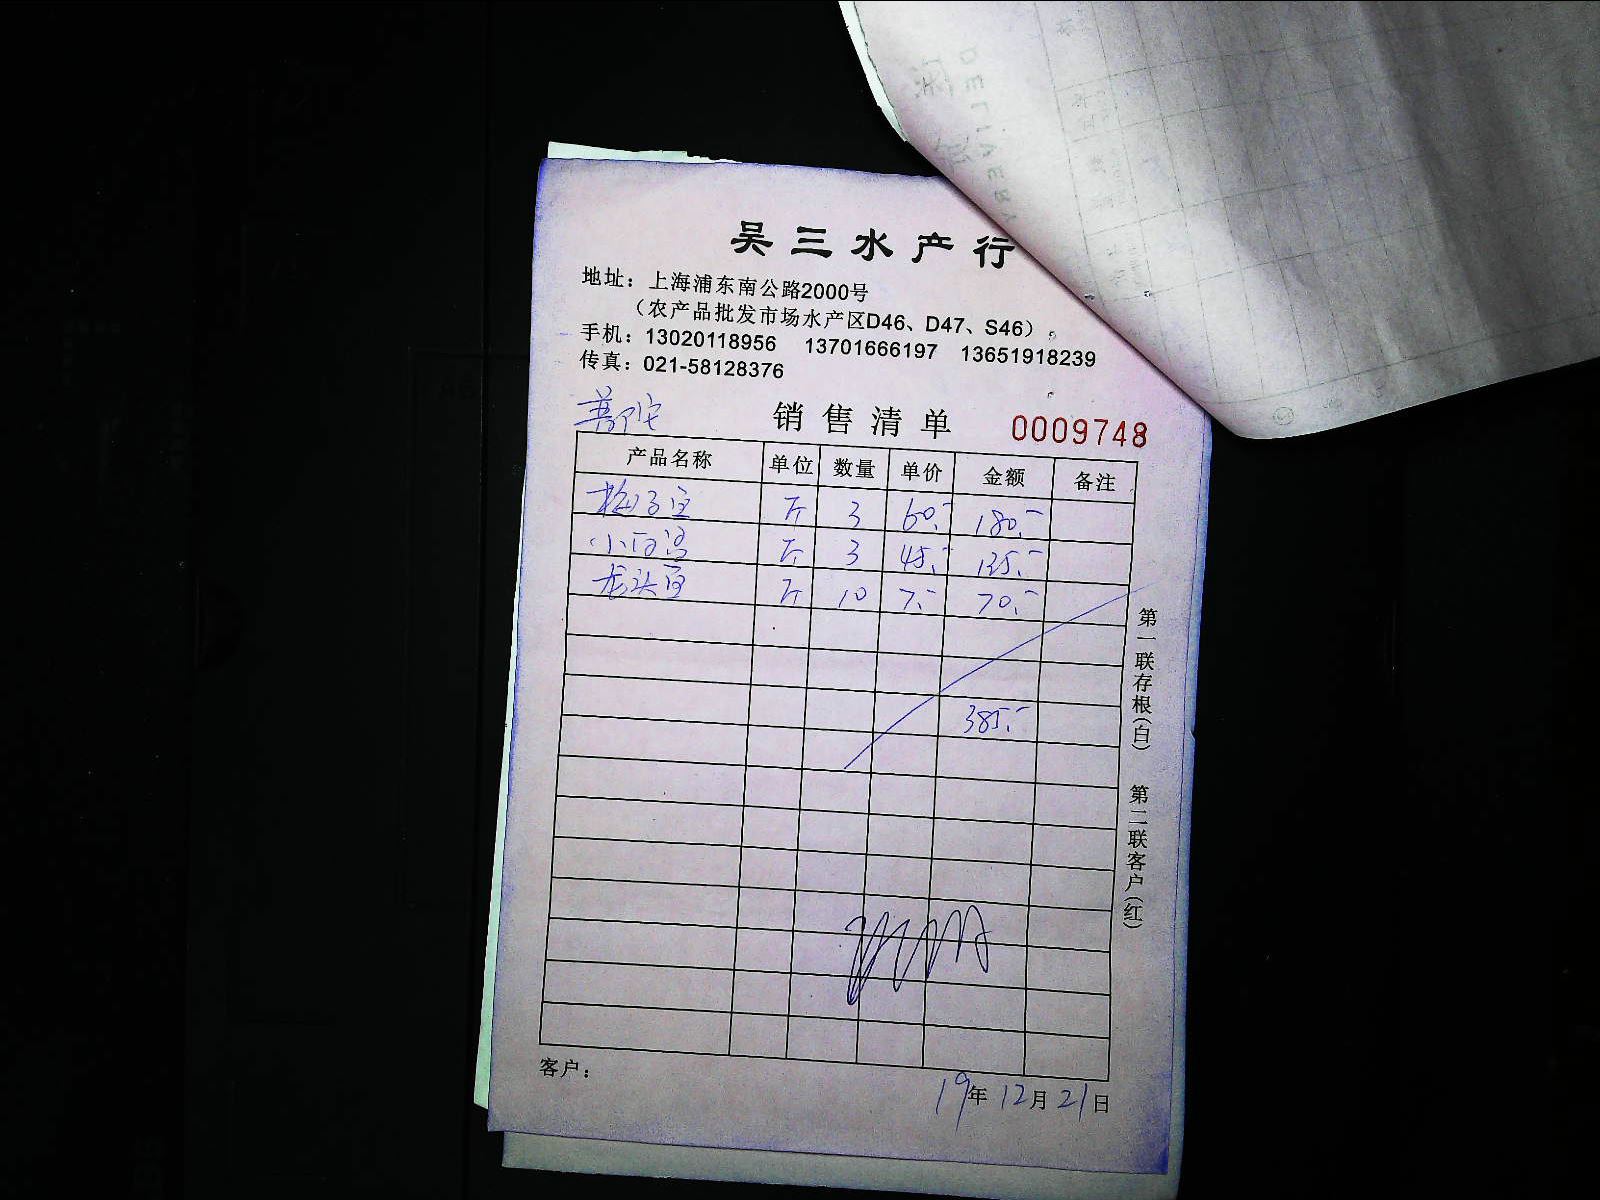 吴三水产行
地址：上海浦东南公路2000号
（农产品批发市场水产区D46、D47、S46）。
手机：13020118956 13701666197 13651918239
传真：021-58128376
销售清单 0009748
产品名称 单位 数量 单价 金额 备注
斤 3 60.- 180.-
斤 3 45.- 135.-
龙头 斤 10 7.- 70.-
385.-
第一联存根（白） 第二联客户（红）
客户：
19年12月21日